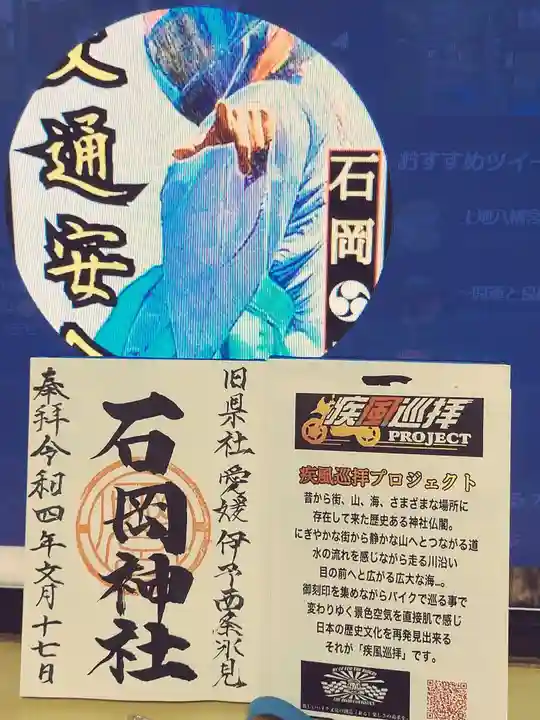 交通安全
石岡
おすすめツイー
奉拝令和四年文月十七日
石岡神社
旧県社愛媛伊予西条氷見
疾風巡拝
PROJECT
疾風巡拝プロジェクト
昔から街、山、海、さまざまな場所に
存在して来た歴史ある神社仏閣。
にぎやかな街から静かな山へとつながる道
水の流れを感じながら走る川沿い
目の前へと広がる広大な海…。
御刻印を集めながらバイクで巡る事で
変わりゆく景色空気を直接肌で感じ
日本の歴史文化を再発見出来る
それが「疾風巡拝」です。